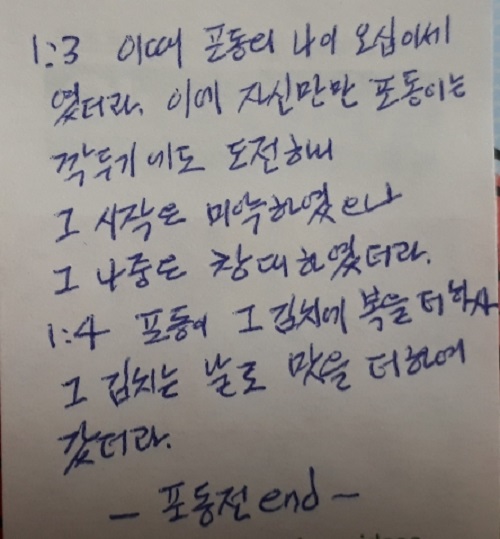 1:3 이때 포동의 나이 오십이세
였더라. 이에 자신만만 포동이는
깍두기에도 도전하니
그 시작은 미약하였으나
그 나중은 창대하였더라.
1:4 포동이 그 김치에 복을 더하사
그 김치는 날로 맛을 더하여
갔더라.
- 포동전 end -